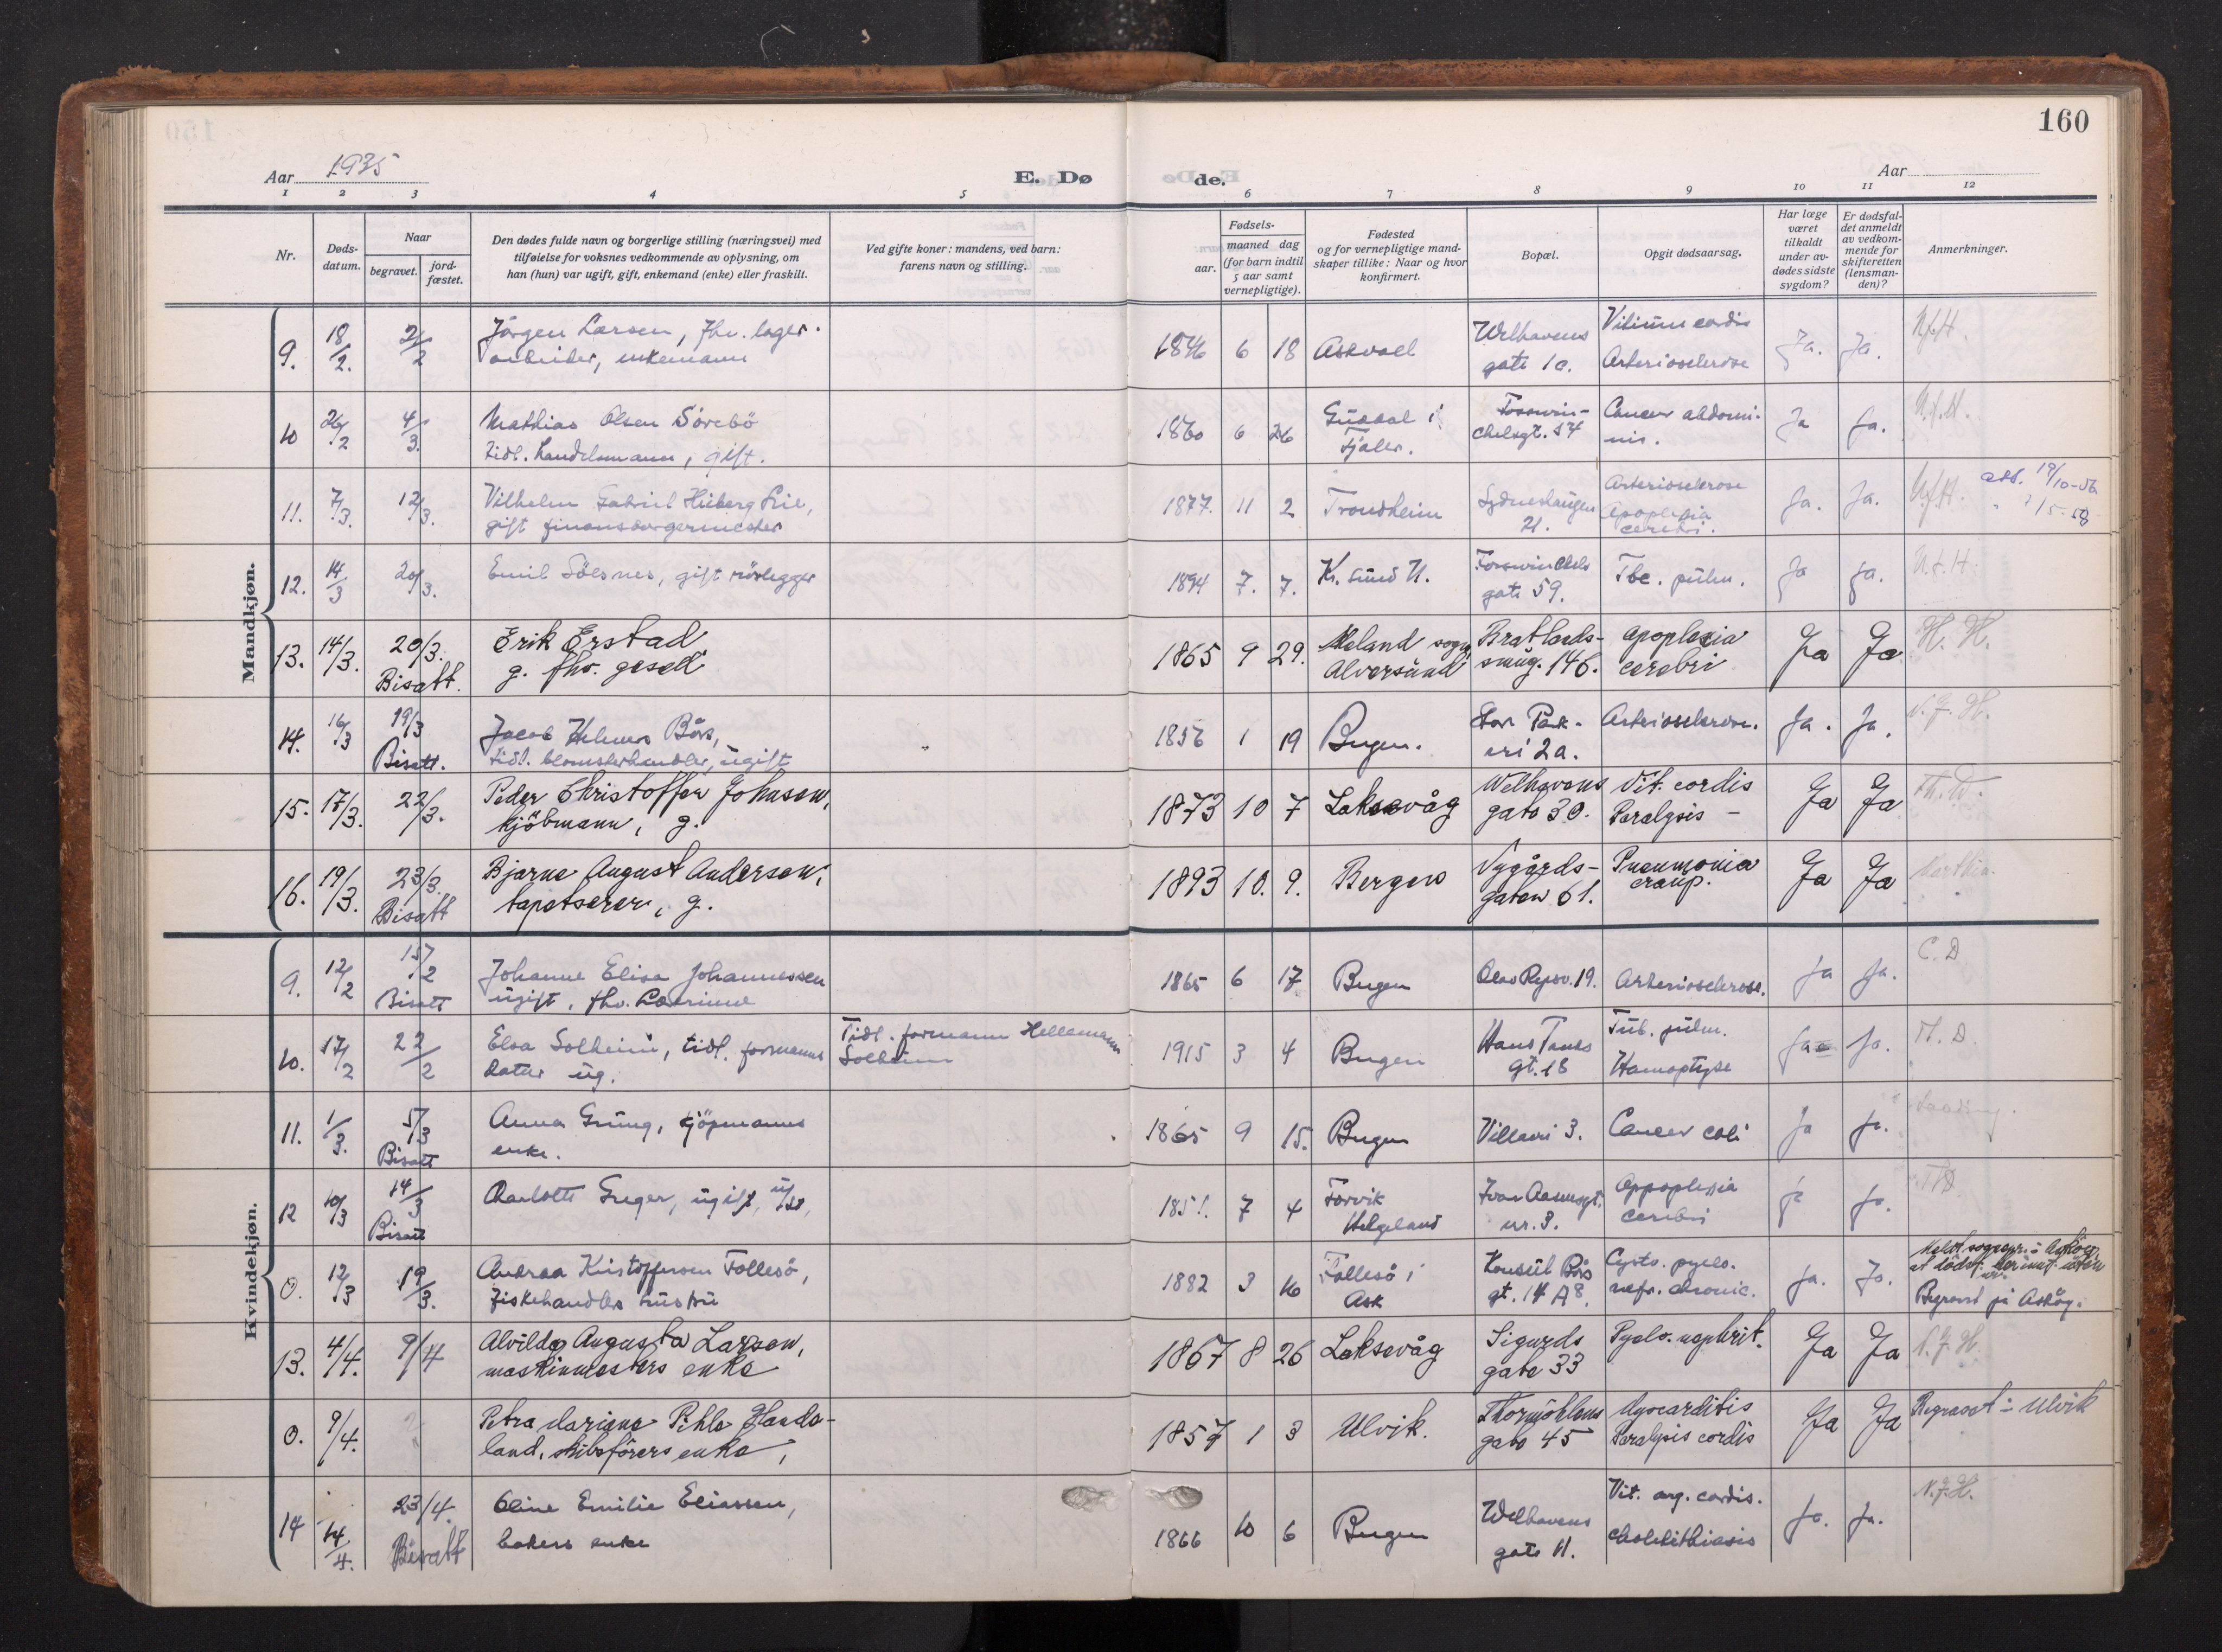 160
Aar 1935
E. Dø de.
Aar
1 2 3 4 5 6 7 8 9 10 11 12
Nr.
Døds-
datum.
Naar
begravet.
jord-
fæstet.
Den dødes fulde navn og borgerlige stilling (næringsvei) med
tilføielse for voksnes vedkommende av oplysning, om
han (hun) var ugift, gift, enkemand (enke) eller fraskilt.
Ved gifte koner: mandens, ved barn:
farens navn og stilling.
Fødsels-
aar.
maaned dag
(for barn indtil
5 aar samt
vernepligtige).
Fødested
og for vernepligtige mand-
skaper tillike: Naar og hvor
konfirmert.
Bopæl.
Opgit dødsaarsag.
Har læge
været
tilkaldt
under av-
dødes sidste
sygdom?
Er dødsfal-
det anmeldt
av vedkom-
mende for
skifteretten
(lensman-
den)?
Anmerkninger.
Mandkjøn.
9. 18/2. 21/2 Jörgen Larsen, fhv. lager-
arbeider, enkemann
1846 6 18 Askvoll
Welhavens
gate 1c.
Vitium cordis
Arteriosclerose
Ja. Ja.
10 26/2 4/3. Mathias Olsen Sörebö
tidl. handelsmann, gift.
1860 6 26 Guddal i
Fjaler.
Fosswin-
ckelsgt. 54
Cancer abdomi-
nis.
Ja Ja.
11. 7/3. 12/3. Vilhelm Gabriel Heiberg Lie,
gift finansborgermester
1877. 11 2 Trondheim
Sydneshaugen
21.
Arteriosclerose
Apoplexia
cerebri.
Ja. Ja. att. 19/10-56
12. 14/3 20/3. Emil Sölsnes, gift rörlegger
1894 7. 7. Kr. sund N.
Fosswinckels
gate 59.
Tbc. pulm.
Ja Ja. N.f.H.
13. 14/3. 20/3.
Bisatt.
Erik Erstad
g. fhv. gesell
1865 9 29. Meland sogn
Alversund
Bratlands-
smug. 14b.
Apoplexia
cerebri
Ja Ja H. H.
14. 16/3 19/3
Bisatt.
Jacob Helmers Börs,
tidl. blomsterhandler, ugift
1856 1 19 Bergen.
Store Park-
vei 2a.
Arteriosclerose.
Ja. Ja. N.f.H.
15. 17/3. 22/3. Peder Christoffer Johnsen,
kjöbmann, g.
1873 10 7 Laksevåg
Welhavens
gate 30.
Vit. cordis
Paralysis –
Ja Ja
16. 19/3. 23/3.
Bisatt
Bjarne August Andersen,
tapetserer, g.
1893 10. 9. Bergen
Nygårds-
gaten 61.
Pneumonia
croup.
Ja Ja
Kvindekjøn.
9. 12/2 15/2
Bisatt
Johanne Elisa Johannessen
ugift, fhv. Lærerinne
1865 6 17 Bergen
Olav Ryesv. 19. Arteriosclerose.
Ja Ja. C. D
10. 17/2 22/2 Elsa Solheim, tidl. formanns
datter ug.
Tidl. formann Hellemann
Solheim
1915 3 4 Bergen
Hans Tanks
gt. 18
Tub. pulm.
Hamoptyse
Ja Ja.
11. 1/3. 5/3
Bisatt
Anna Grung, kjöpmanns
enke.
1865 9 15. Bergen Villavei 3. Cancer coli
Ja Ja.
12 10/3 14/3
Bisatt
Charlotte Greger, ugift,
1851. 7 4 Forvik
Helgeland
Ivar Aasensgt.
nr. 3.
Appoplexia
cerebri
Ja Ja.
0. 12/3 19/3. Andrea Kristoffersen Follesö,
fiskehandlers hustru
1882 3 16 Follesö i
Ask
Konsul Börs
gt. 14 A8.
Cysto. pyelo.
nefr. chronic.
Ja. Ja.
Begravet på Asköy.
13. 4/4. 9/4 Alvilda Augusta Larsen,
maskinmesters enke
1867 8 26 Laksevåg
Sigurds
gate 33
Pyelo. nephrit.
Ja Ja N.f.H.
0. 9/4. Petra Mariane Pihle Handa-
land, skibsförers enke,
1857 1 3 Ulvik.
Thormöhlens
gate 45
Myocarditis
Paralysis cordis
Ja Ja Begravet i Ulvik
14 14/4. 23/4.
Bisatt
Oline Emilie Eliassen,
bakers enke
1866 10 6 Bergen
Welhavens
gate 11.
Vit. org. cordis.
Cholelithiasis
Ja. Ja. N.f.H.